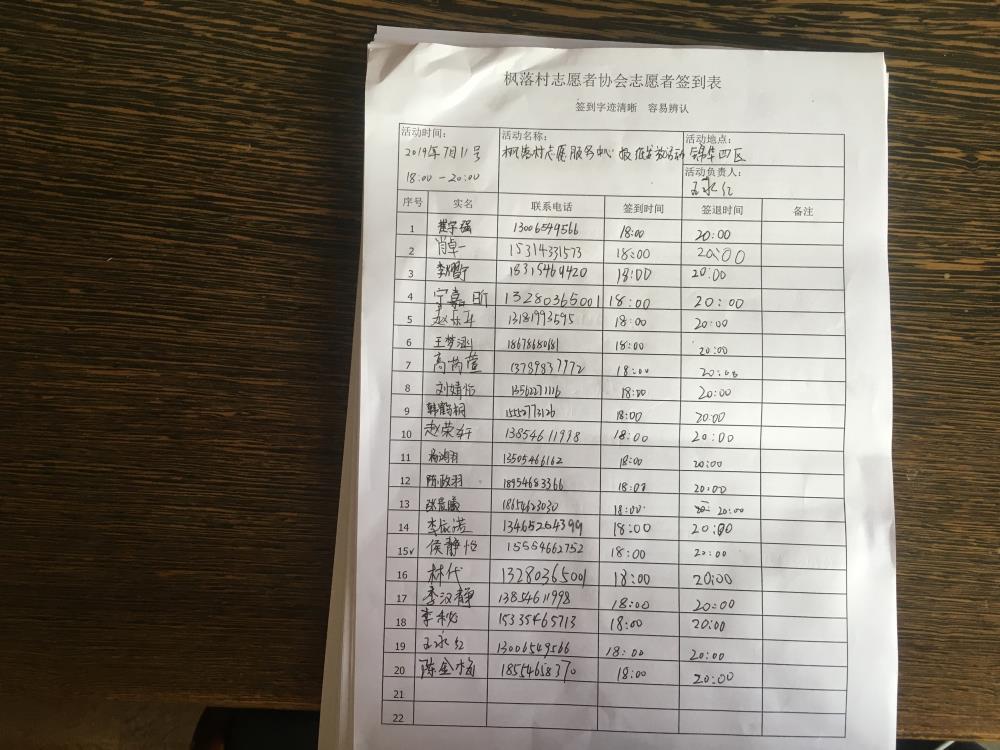 枫落村志愿者协会志愿者签到表
签到字迹清晰 容易辨认
活动时间: 活动名称: 活动地点:
2019年7月11号 枫落村志愿服务中心 活动 锦华四区
18:00-20:00 活动负责人:
王永红
序号 实名 联系电话 签到时间 签退时间 备注
1 崔宇强 13006549566 18:00 20:00
2 肖卓一 15314331573 18:00 20:00
3 18315464420 18:00 20:00
4 宁嘉昕 13280365001 18:00 20:00
5 赵乐 13181993595 18:00 20:00
6 王梦涵 18678680181 18:00 20:00
7 高芮萱 13789837972 18:00 20:00
8 刘婧怡 13562271116 18:00 20:00
9 韩鹤桐 15552773126 18:00 20:00
10 赵荣轩 13854611998 18:00 20:00
11 13505466162 18:00 20:00
12 陈政羽 18954683366 18:00 20:00
13 18654623030 18:00 20:00
14 李依诺 13465264399 18:00 20:00
15√ 侯静怡 15554662752 18:00 20:00
16 林代 13280365001 18:00 20:00
17 季汉静 13854611998 18:00 20:00
18 李秋 15335465713 18:00 20:00
19 王永红 13006549566 18:00 20:00
20 陈金梅 18554658370 18:00 20:00
21
22